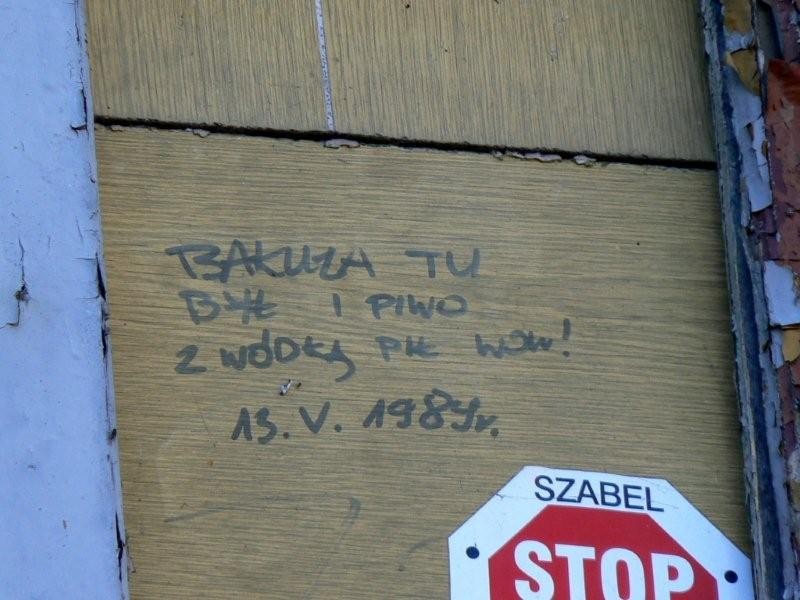 BAKUŁA TU
BYŁ I PIWO
Z WÓDKĄ PIŁ WOW!
13. V. 1989r.
SZABEL
STOP